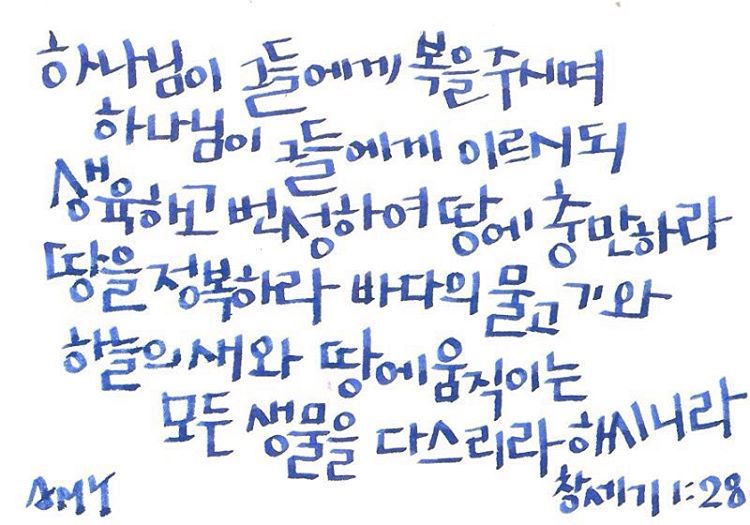 하나님이 그들에게 복을 주시며
하나님이 그들에게 이르시되
생육하고 번성하여 땅에 충만하라
땅을 정복하라 바다의 물고기와
하늘의 새와 땅에 움직이는
모든 생물을 다스리라 하시니라
AMY 창세기 1:28